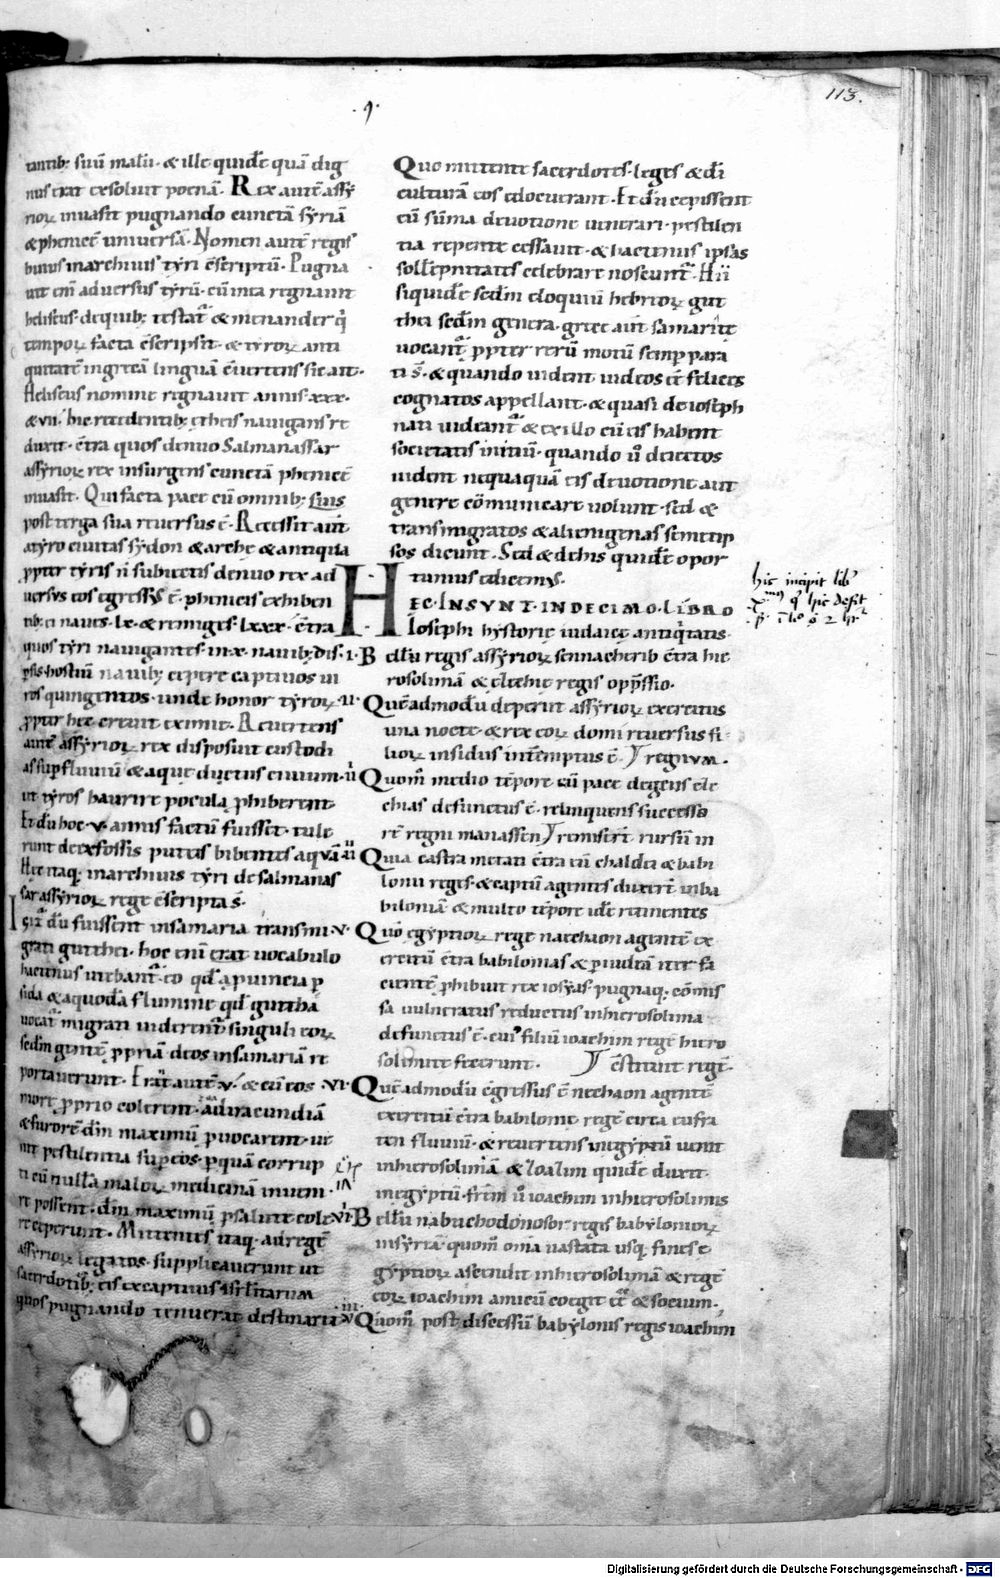 113.
tantib; suū malū· & ille quidē quā dig
nus erat exsoluit poenā. Rex autē assy
rioꝝ inuasit pugnando cunctā syriā
& phenicē uniuersā. Nomen autē regis
huius in archiuis tyri cscriptū. Pugna
uit eni aduersus tyrū· cū in ea regnauit
heliseus· de quib; testat & menander q
tempoꝝ facta cscripsit· & tyrioꝝ anti
quitatē in grecā linguā cuertens sic ait·
Heliseus nomine regnauit annis· xxx·
& vii· hic recedentib; citheis nauigans re
duxit· c̄tra quos denuo Salmanassar
assyrioꝝ rex insurgens cunctā phenicē
inuasit. Qui facta pace cū omnib; suis
post terga sua reuersus ē. Recessit aut
a tyro ciuitas sydon & arche & antiqua
ꝓpter tyriis n̄ subiectis denuo rex ad
uersus eos egressus ē· phenicis exhiben
tib; ei naues· lx· & remiges· lxxx· c̄tra
quos tyri nauigantes· in· x· nauib; dis
psis hostiū nauib; cepere captiuos ui
ros quingentos· unde honor tyrioꝝ
ꝓpter hec creuit eximie. Reuertens
autē assyrioꝝ rex disposuit custodi
as sup fluuiū & aquę ductus ciuium·
ut tyros haurire pocula phiberent·
Et dū hoc· v· annis factū fuisset· tule
runt de effossis puteis bibentes aquā
Hec itaq; in archiuis tyri de salmanas
sar assyrioꝝ rege cscripta s̄.
Igit dū fuissent in samaria transmi
grati gutthei· hoc eni erat uocabulo
hactenus utebant· eo qd a puincia p
sida & a quodā flumine qd guttha
uocat migrati uiderent singuli eoꝝ
scdm gentē ppriā deos in samariā re
portauerunt. Erat autē v· & cū eos
more pprio colerent· ad iracundiā
& furorē dm maximū puocarent· ut
nit pestilentia sup eos· p quā corrup
ti cū nullā maloꝝ medicinā inueni
re possent· dm maximū p salute cole
re ceperunt. Mittentes itaq; ad regē
assyrioꝝ legatos· supplicauerunt ut
sacerdotib; eis ex captiuis israhelitarum
quos pugnando tenuerat destinaret
Quo mittente sacerdotes· leges & di
culturā eos edocuerant. Et dn cepissent
cū sūma deuotione uenerari· pestilen
tia repente cessauit· & hactenus ipsas
sollēpnitates celebrare noscunt. Hii
siquidē scdm eloquiū hebreoꝝ gut
thei scdm genera· grece aut samaritę
uocant· ppter rerū motū semp para
ti s̄· & quando uident iudeos ee felices
cognatos appellant· & quasi de ioseph
nati uideant & ex illo cū eis habent
societatis initiū· quando ū deiectos
uident nequaquā eis deuotione aut
genere cōmunicare uolunt· sed &
transmigratos & alienigenas semetip
sos dicunt. Sed & de his quidē opor
tunius edicemus.
HEC· INSVNT· IN DECIMO· LIBRO
Iosephi hystorie iudaice antiqtatis·
·I· Bellū regis assyrioꝝ sennacherib c̄tra hie
rosolimā & ezechie regis opp̄ssio.
·II· Quēadmodū deperiit assyrioꝝ exercitus
una nocte· & rex eoꝝ domi reuersus fi
lioꝝ insidiis intēemptus ē· regnum.
Quom̄ medio tēpore cū pace degens eze
chias defunctus ē· relinquens successo
rē regni manassen remiserit rursū in
Quia castra metati c̄tra eū chaldei & babi
lonii reges· & captū agentes duxert in ba
biloniā & multo tēpore idē retinentes
·V· Quō egyptioꝝ rege nechaon agentē ex
ercitū c̄tra babilonias & p iudeā iter fa
cientē phibuit rex iosyas· pugnaq; cōmis
sa uulneratus reductus in hierosolima
defunctus ē· cui' filiū ioachim regē hiero
solimite fecerunt. cstituit regē·
·VI· Quēadmodū cgressus ē nechaon agentē
exercitū c̄tra babilonię regē circa eufra
ten fluuiū· & reuertens in egyptū uenit
in hierosolimā & Ioalim quidē duxit
in egyptū· frem ū ioachim in hierosolimis
Bellū nabuchodonosor· regis babylonioꝝ
in syriā· quom̄ omia uastata usq; fines e
gyptioꝝ ascendit in hierosolimā & regē
eoꝝ ioachim amicū coegit ee & socium.
Quom̄ post discessū babylonis regis ioachim
hic incipit lib'
Digitalisierung gefördert durch die Deutsche Forschungsgemeinschaft - DFG